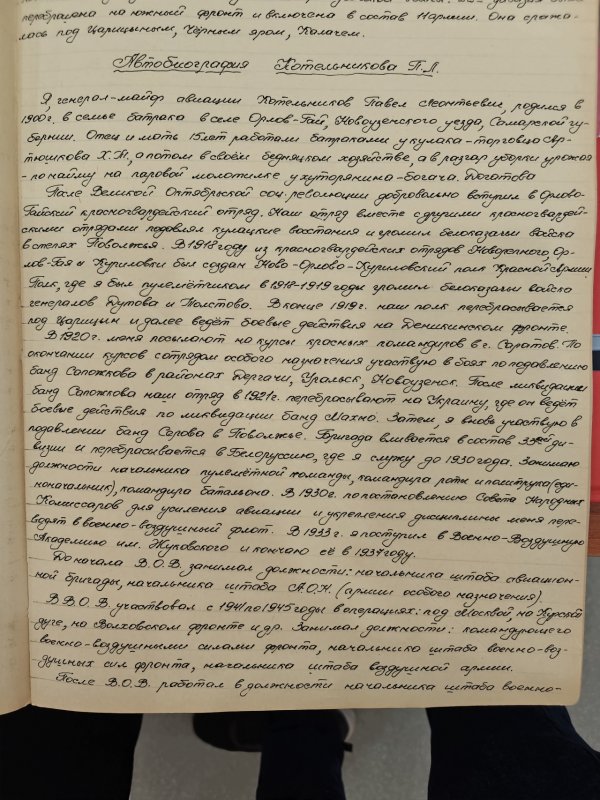 переброшена на южный фронт и включена в состав X армии. Она сража-
лась под Царицыным, Чёрным яром, Калачем.
Автобиография Котельникова П.Л.
Я, генерал-майор авиации Котельников Павел Леонтьевич, родился в
1900г. в семье батрака в селе Орлов-Гай, Новоузенского уезда, Самарской гу-
бернии. Отец и мать 15 лет работали батраками у кулака-торговца Ар-
тюшкова Х.А, а потом в своём бедняцком хозяйстве, а в разгар уборки урожая
- по найму на паровой молотилке у хуторянина-богача.
После Великой Октябрьской соц. революции добровольно вступил в Орлово-
Гайский красногвардейский отряд. Наш отряд вместе с другими красногвардей-
скими отрядами подавлял кулацкие восстания и громил белоказачьи войска
в степях Поволжья. В 1918 году из красногвардейских отрядов Новорепного, Ор-
лов-Гая и Куриловки был создан Ново-Орлово-Куриловский полк Красной Армии
Полк, где я был пулемётчиком в 1918-1919 годы громил белоказачьи войска
генералов Дутова и Толстова. В конце 1919г. наш полк перебрасывается
под Царицын и далее ведёт боевые действия на Деникинском фронте.
В 1920г. меня посылают на курсы красных командиров в г. Саратов. По
окончании курсов с отрядом особого назначения участвую в боях по подавлению
банд Сапожкова в районах Дергачи, Уральск, Новоузенск. После ликвидации
банд Сапожкова наш отряд в 1921г. перебрасывают на Украину, где он ведёт
боевые действия по ликвидации банд Махно. Затем, я вновь участвую в
подавлении банд Серова в Поволжье. Бригада вливается в состав 33ей ди-
визии и перебрасывается в Белоруссию, где я служу до 1930 года. Занимаю
должности начальника пулемётной команды, командира роты и политрука (еди-
ноначальник), командира батальона. В 1930г. по постановлению Совета Народных
Комиссаров для усиления авиации и укрепления дисциплины меня пере-
водят в военно-воздушный флот. В 1933г. я поступил в Военно-Воздушную
Академию им. Жуковского и кончаю её в 1937 году.
До начала В.О.В. занимал должности: начальника штаба авиацион-
ной бригады, начальника штаба А.О.Н. (армии особого назначения).
В В.О.В. участвовал с 1941 по 1945 годы в операциях: под Москвой, на Курской
дуге, на Волховском фронте и др. Занимал должности: командующего
военно-воздушными силами фронта, начальника штаба военно-воз-
душных сил фронта, начальника штаба воздушной армии.
После В.О.В. работал в должности начальника штаба военно-